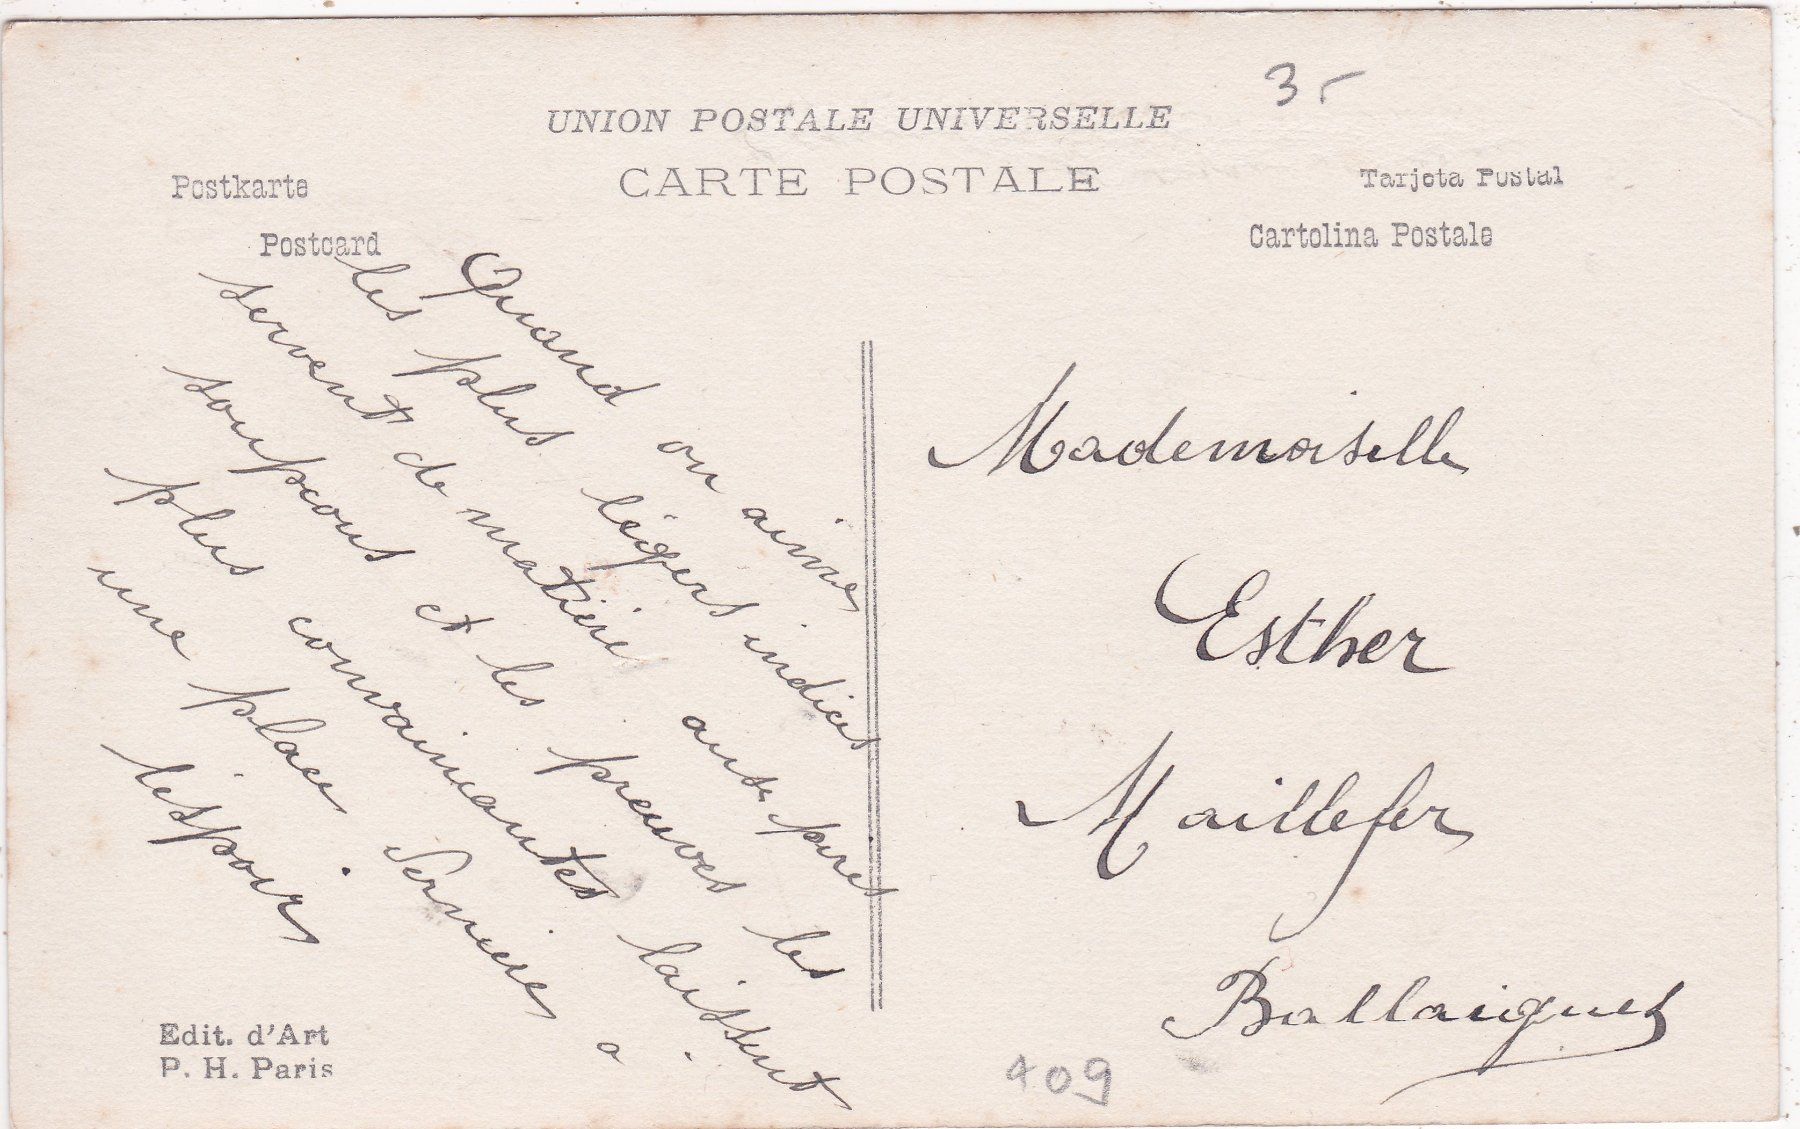 3.-
UNION POSTALE UNIVERSELLE
CARTE POSTALE
Postkarte
Postcard
Tarjeta Postal
Cartolina Postale
Quand on aime
les plus légers indices
servent de matière aux pires
soupcons et les preuves les
plus convaincantes laissent
une place dernière à
lespoir
Mademoiselle
Esther
Maillefer
Ballaigues
Edit. d'Art
P. H. Paris
409